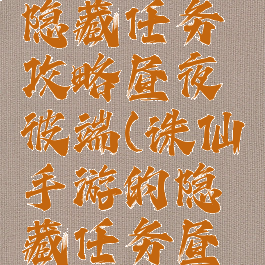 隐藏任务
攻略昼夜
彼端(诛仙
手游的隐
藏任务昼